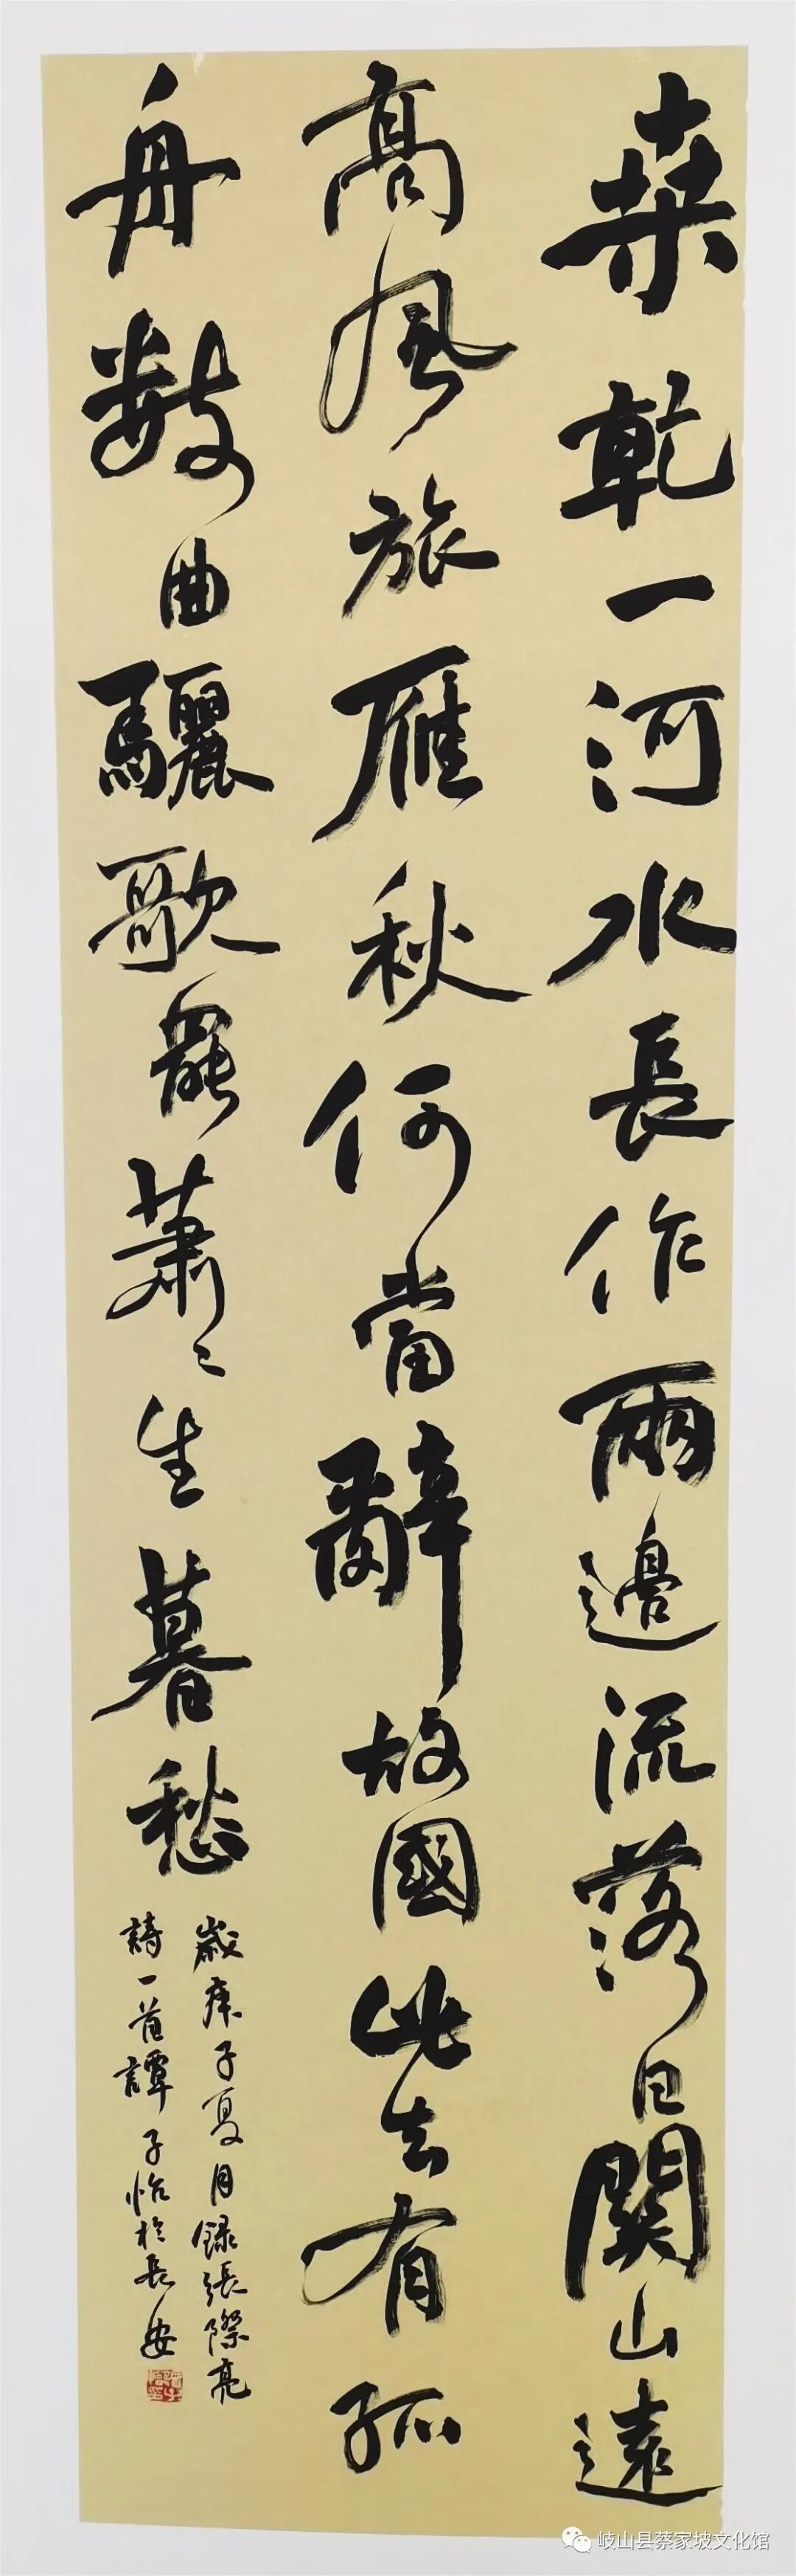 桑乾一河水長作兩邊流落日關山遠
高風旅雁秋何當辭故國此去有孤
舟數曲驪歌罷蕭〻生暮愁
歲庚子夏月錄張際亮
詩一首譚子怡於長安
岐山县蔡家坡文化馆